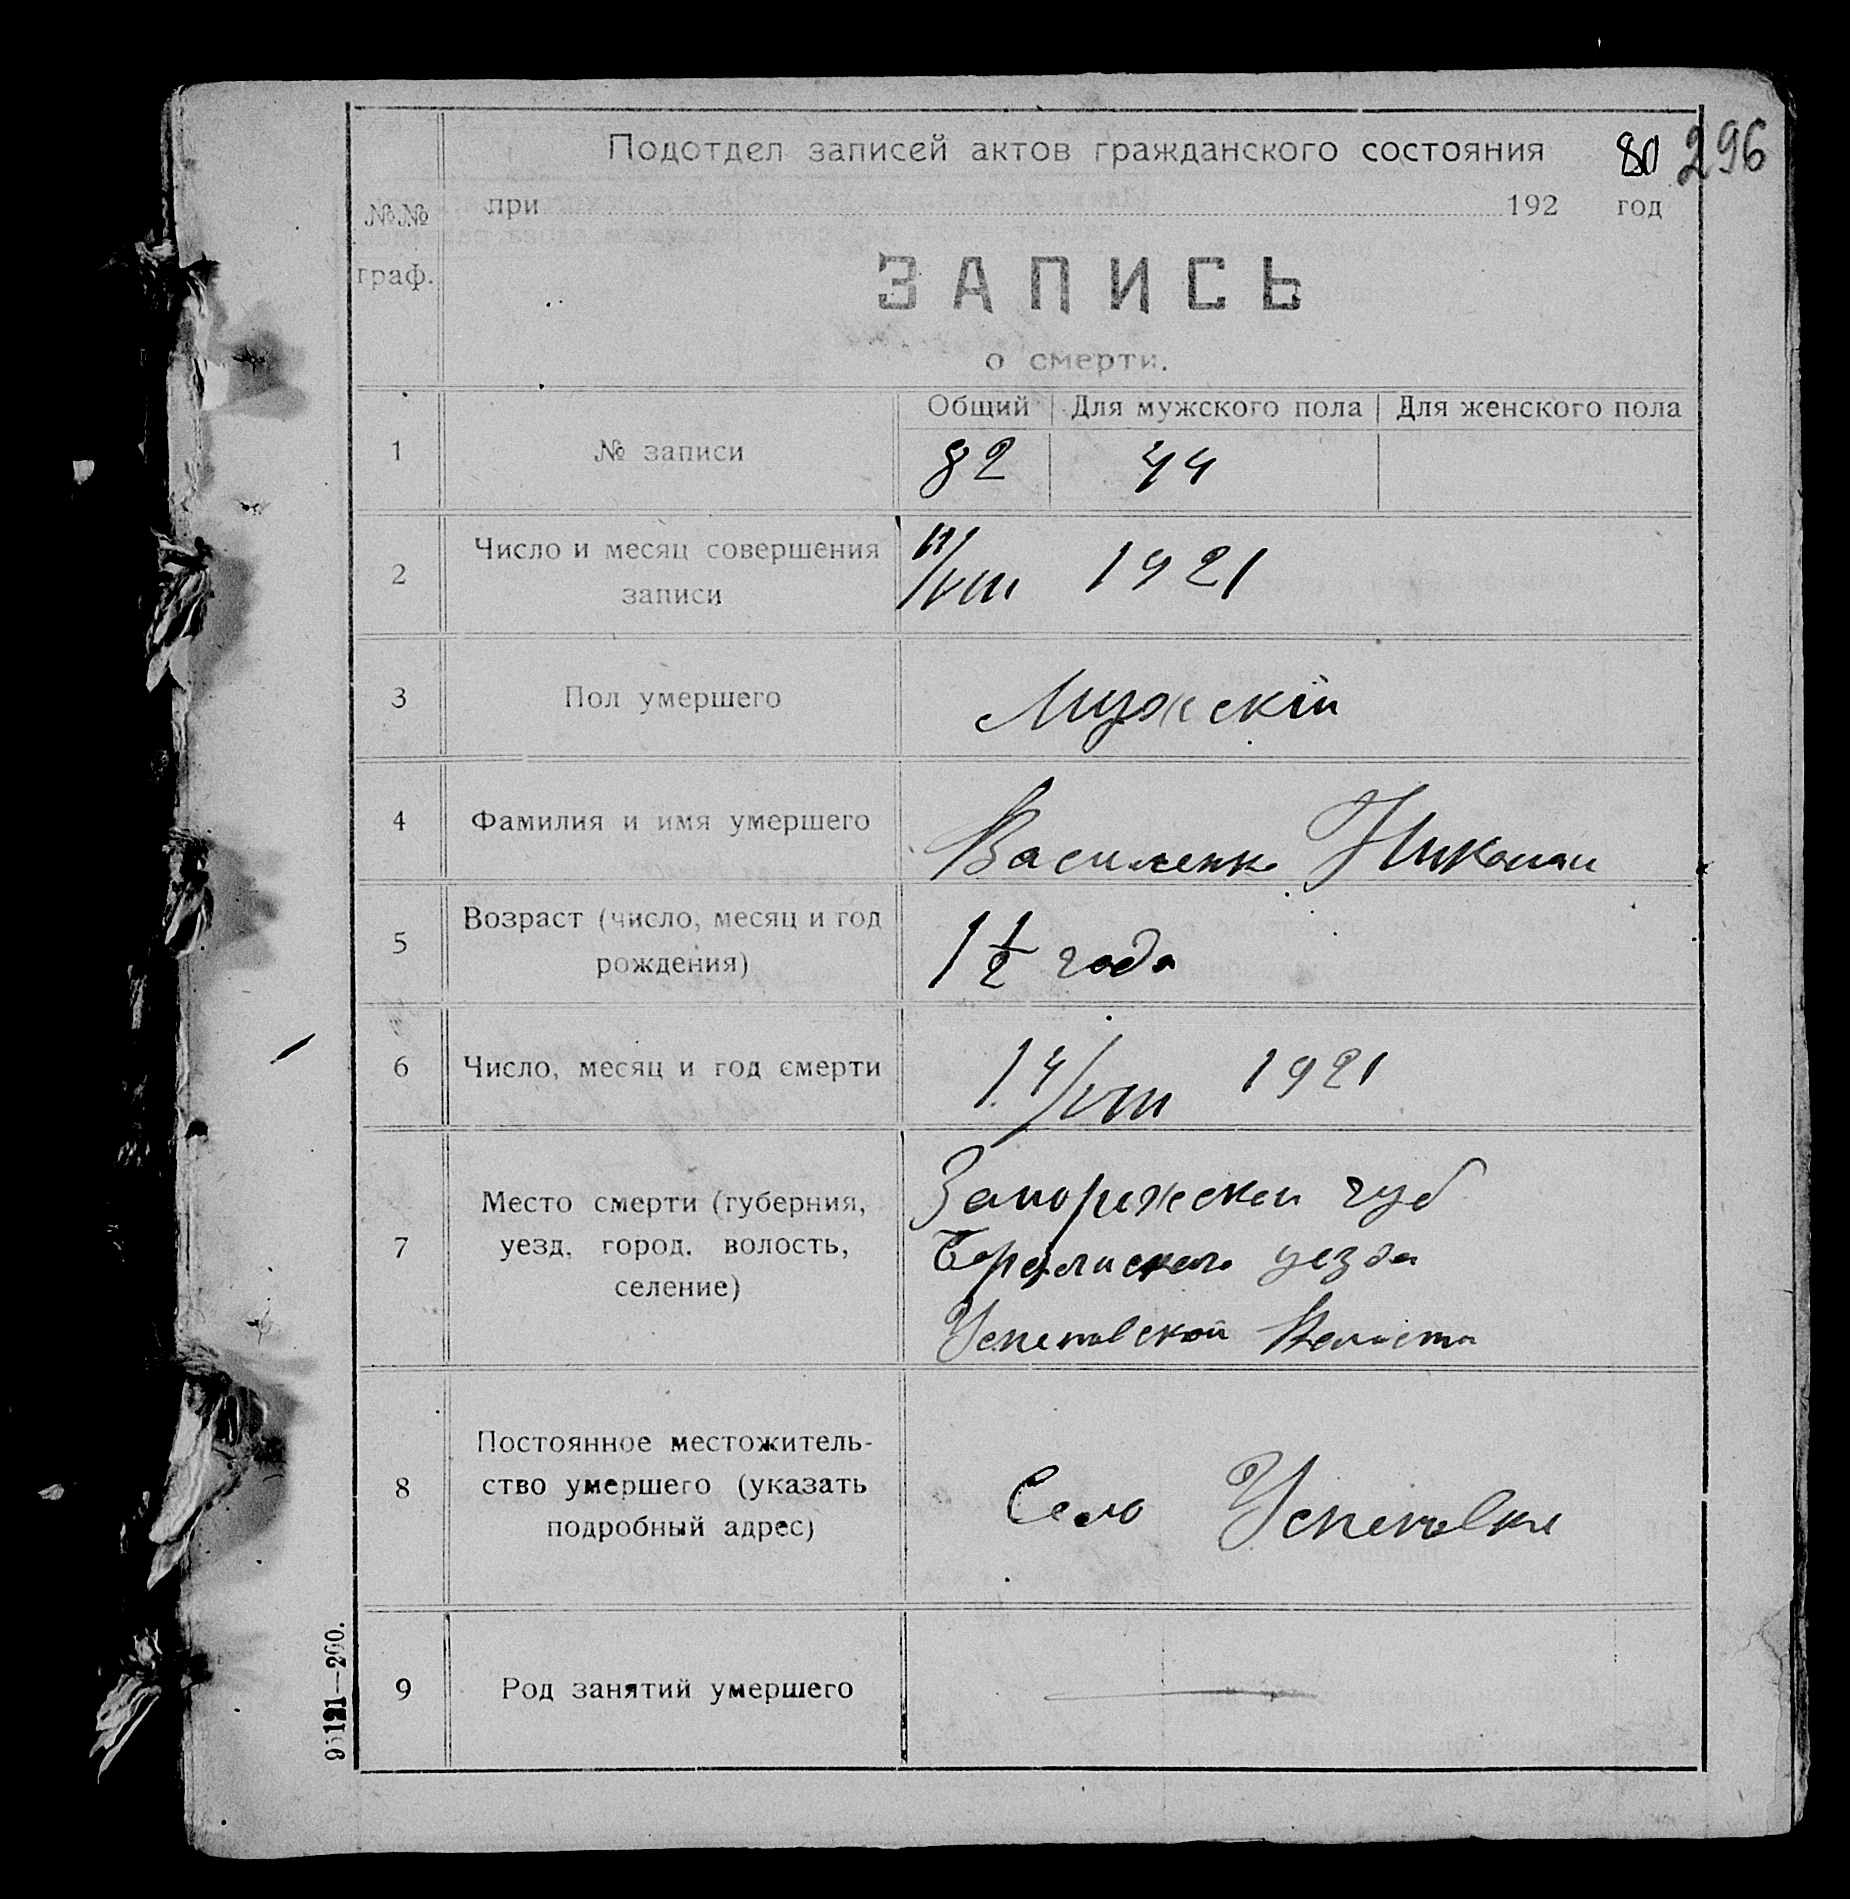 Подотдел записей актов гражданского состояния
80 296
№№ граф.
при 192 год
ЗАПИСЬ
о смерти.
Общий Для мужского пола Для женского пола
1 № записи 82 44
2 Число и месяц совершения записи /VIII 1921
3 Пол умершего Мужскій
4 Фамилия и имя умершего Василенко Николай
5 Возраст (число, месяц и год рождения) 1 1/2 года
6 Число, месяц и год смерти 14/VIII 1921
7 Место смерти (губерния, уезд, город, волость, селение)
Запорожской губ
уезда
Успеновской Волости
8 Постоянное местожитель-
ство умершего (указать
подробный адрес)
Село Успеновке
9 Род занятий умершего